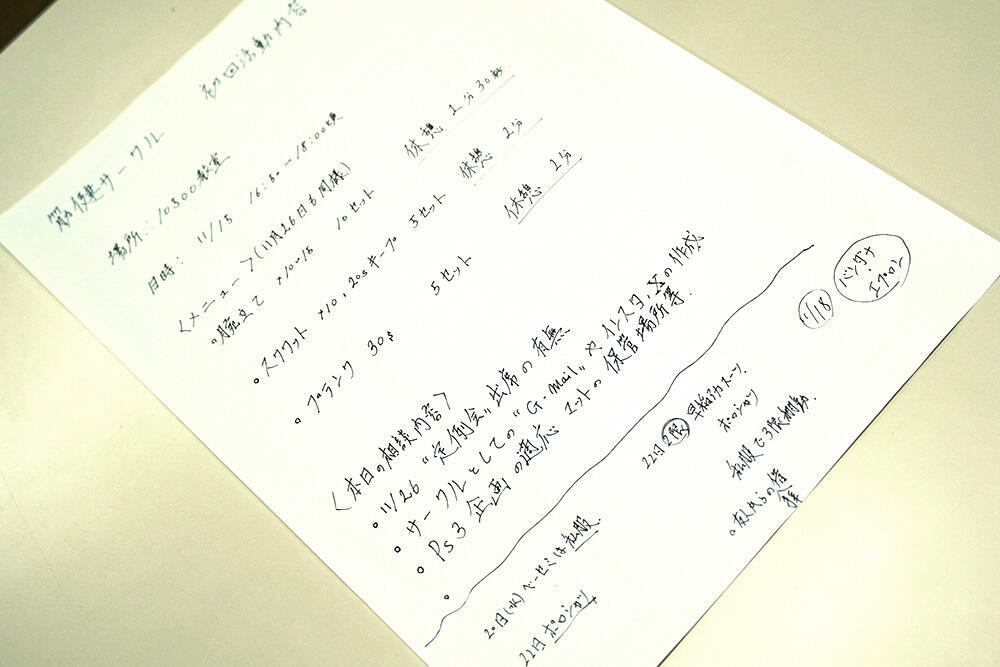 初回活動内容
サークル
場所: 10300教室
日時: 11/15 16:30-18:00頃
<メニュー>(11月26日も同様)
。腕立て ×10~15 10セット 休憩 1分30秒
。スクワット ×10, 20sキープ 5セット 休憩 2分
。プランク 30s 5セット 休憩 2分
<本日の相談内容>
。11/26 "定例会"出席の有無
。サークルとしての"G-mail"やインスタ, Xの作成
。Ps3 企画の適応
。 ユットの保管場所等.
11/18 バンダナ・エプロン
20日(水)ベーゼミは私服.
22日 ポロシャツ
22日2限 スーツ.
ポロシャツ
私服で3限
。友人からの借